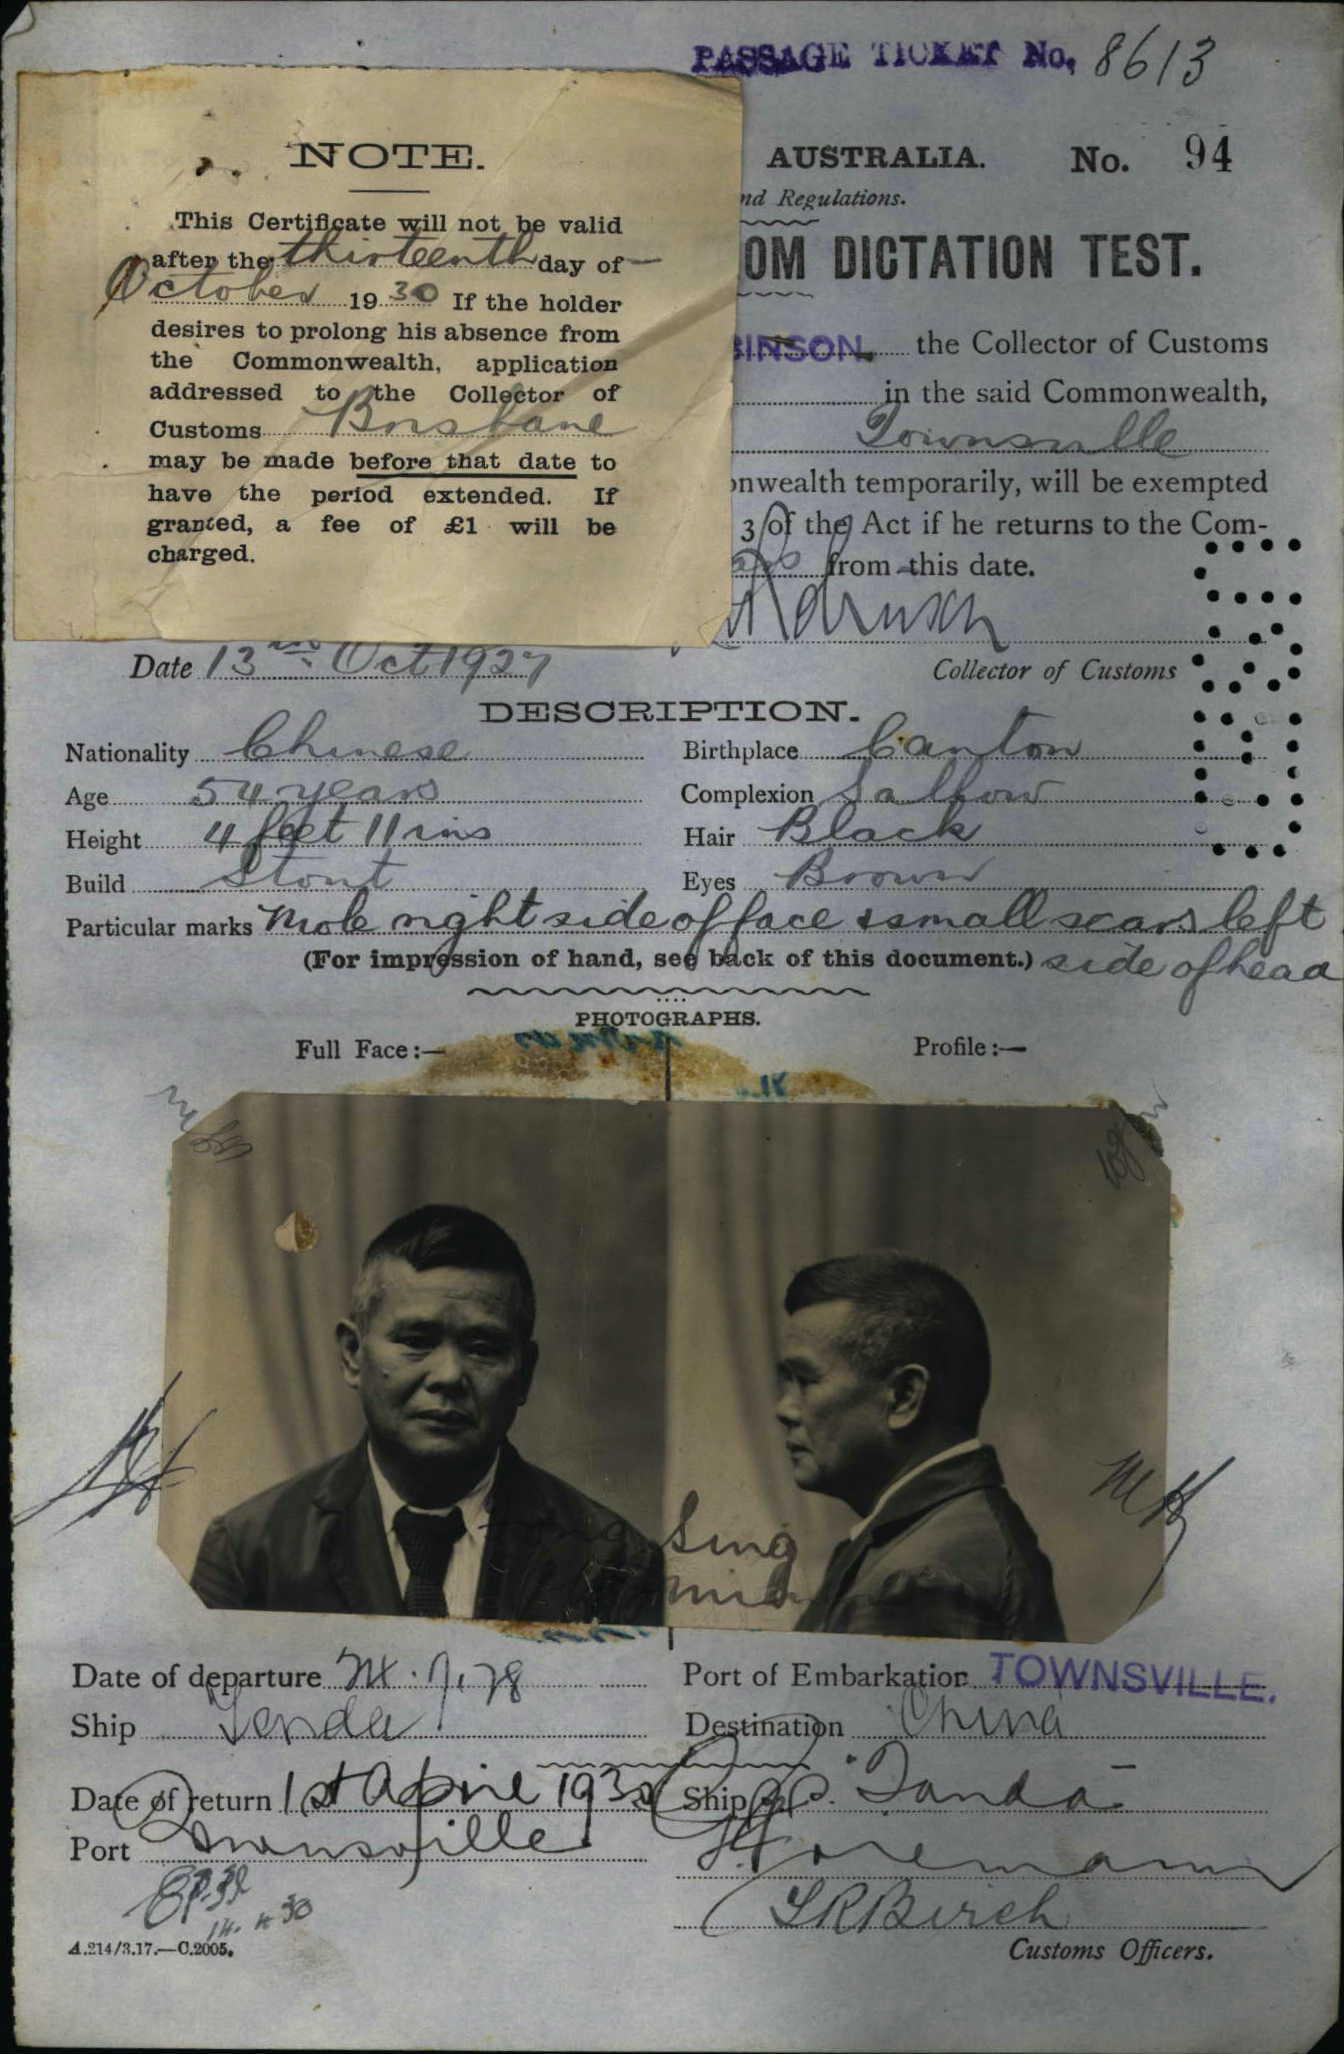 PASSAGE TICKET No. 8613
NOTE.
This Certificate will not be valid
after the thirteenth day of
October 1930 If the holder
desires to prolong his absence from
the Commonwealth, application
addressed to the Collector of
Customs Brisbane
may be made before that date to
have the period extended. If
granted, a fee of £1 will be
charged.
AUSTRALIA. No. 94
nd Regulations.
OM DICTATION TEST.
BINSON, the Collector of Customs
in the said Commonwealth,
Townsville
onwealth temporarily, will be exempted
3 of the Act if he returns to the Com-
from this date.
Date 13th Oct 1927
Collector of Customs
DESCRIPTION.
Nationality Chinese Birthplace Canton
Age 54 years Complexion Sallow
Height 4 feet 11 ins Hair Black
Build Stout Eyes Brown
Particular marks Mole right side of face & small scars left
(For impression of hand, see back of this document.) side of head
PHOTOGRAPHS.
Full Face:— Profile:—
Sing
Date of departure Port of Embarkation TOWNSVILLE.
Ship Tanda Destination China
Date of return 1st April 1930 Ship S.S. "Tanda"
Port Townsville
14. 4 30
L R Birch
A.214/3.17.—C.2005. Customs Officers.